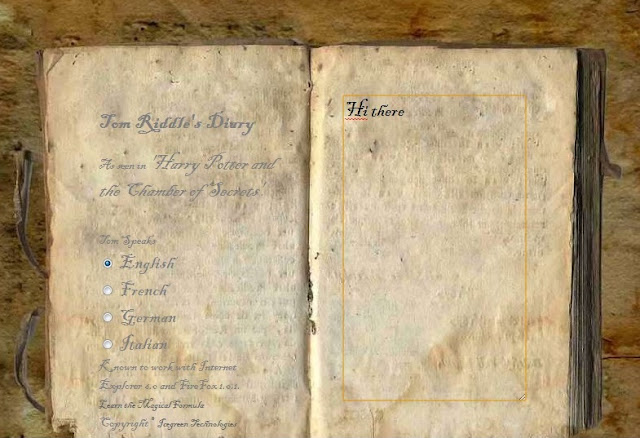 Tom Riddle's Diary
As seen in Harry Potter and
the Chamber of Secrets
Tom Speaks
English
French
German
Italian
Known to work with Internet
Explorer 6.0 and FireFox 1.0.1.
Learn the Magical Formula
Copyright © Icegreen Technologies
Hi there